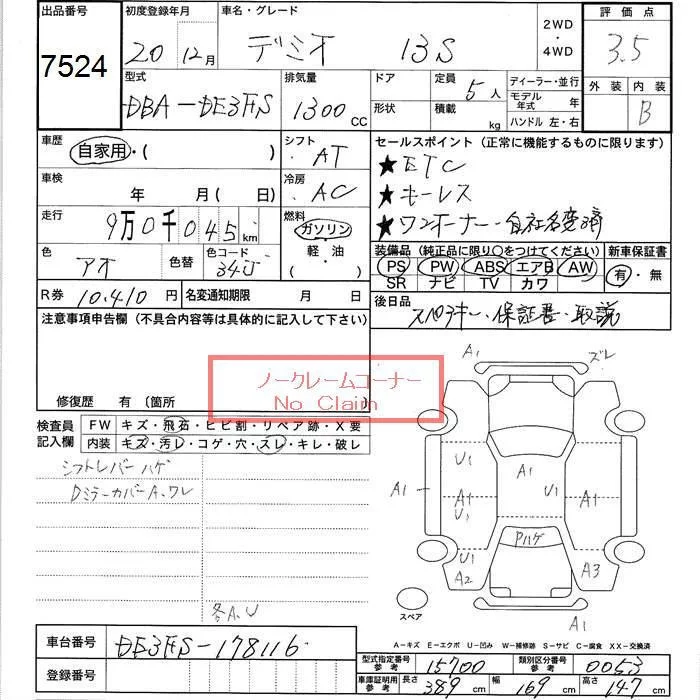 出品番号 初度登録年月 車名・グレード 2WD ・ 4WD 評価点
7524 20 12月 デミオ 13S 3.5
型式 排気量 ドア 定員 5人 ディーラー・並行 外装 内装
DBA-DE3FS 1300CC 形状 積載 kg モデル年式 年 B
ハンドル 左・右
車歴 自家用・( ) シフト AT セールスポイント (正常に機能するものに限ります)
★ETC
車検 年 月( 日) 冷房 AC ★キーレス
走行 9万0千045km 燃料 ガソリン ★ワンオーナー・自社名変済
軽油 ( ) 装備品 (純正品に限り○をつけてください) 新車保証書
色 アオ 色替 色コード 34J PS PW ABS エアB AW 有・無
SR ナビ TV カワ
R券 10,410円 名変通知期限 月 日 後日品
スペアキー、保証書・取説
注意事項申告欄 (不具合内容等は具体的に記入して下さい)
ノークレームコーナー
No Claim
修復歴 有 〔箇所
検査員記入欄 FW キズ・飛石・ヒビ割・リペア跡・X要
内装 キズ・汚レ・コゲ・穴・スレ・キレ・破レ
シフトレバー ハゲ
Dミラーカバー A、ワレ
各A、U
A1 ズレ
U1 A1 U1
A1 A1 U1 A1
Pハゲ
U1 A2 A3
スペア A1
A-キズ E-エクボ U-凹み W-補修跡 S-サビ C-腐食 XX-交換済
車台番号 DE3FS-178116
型式指定番号 参考 15700 類別区分番号 参考 0053
登録番号 車庫証明用 参考 長さ 389cm 幅 169cm 高さ 147cm